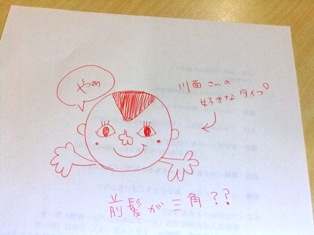 やぁ
川西さんの
好きなタイプ
前髪が三角??